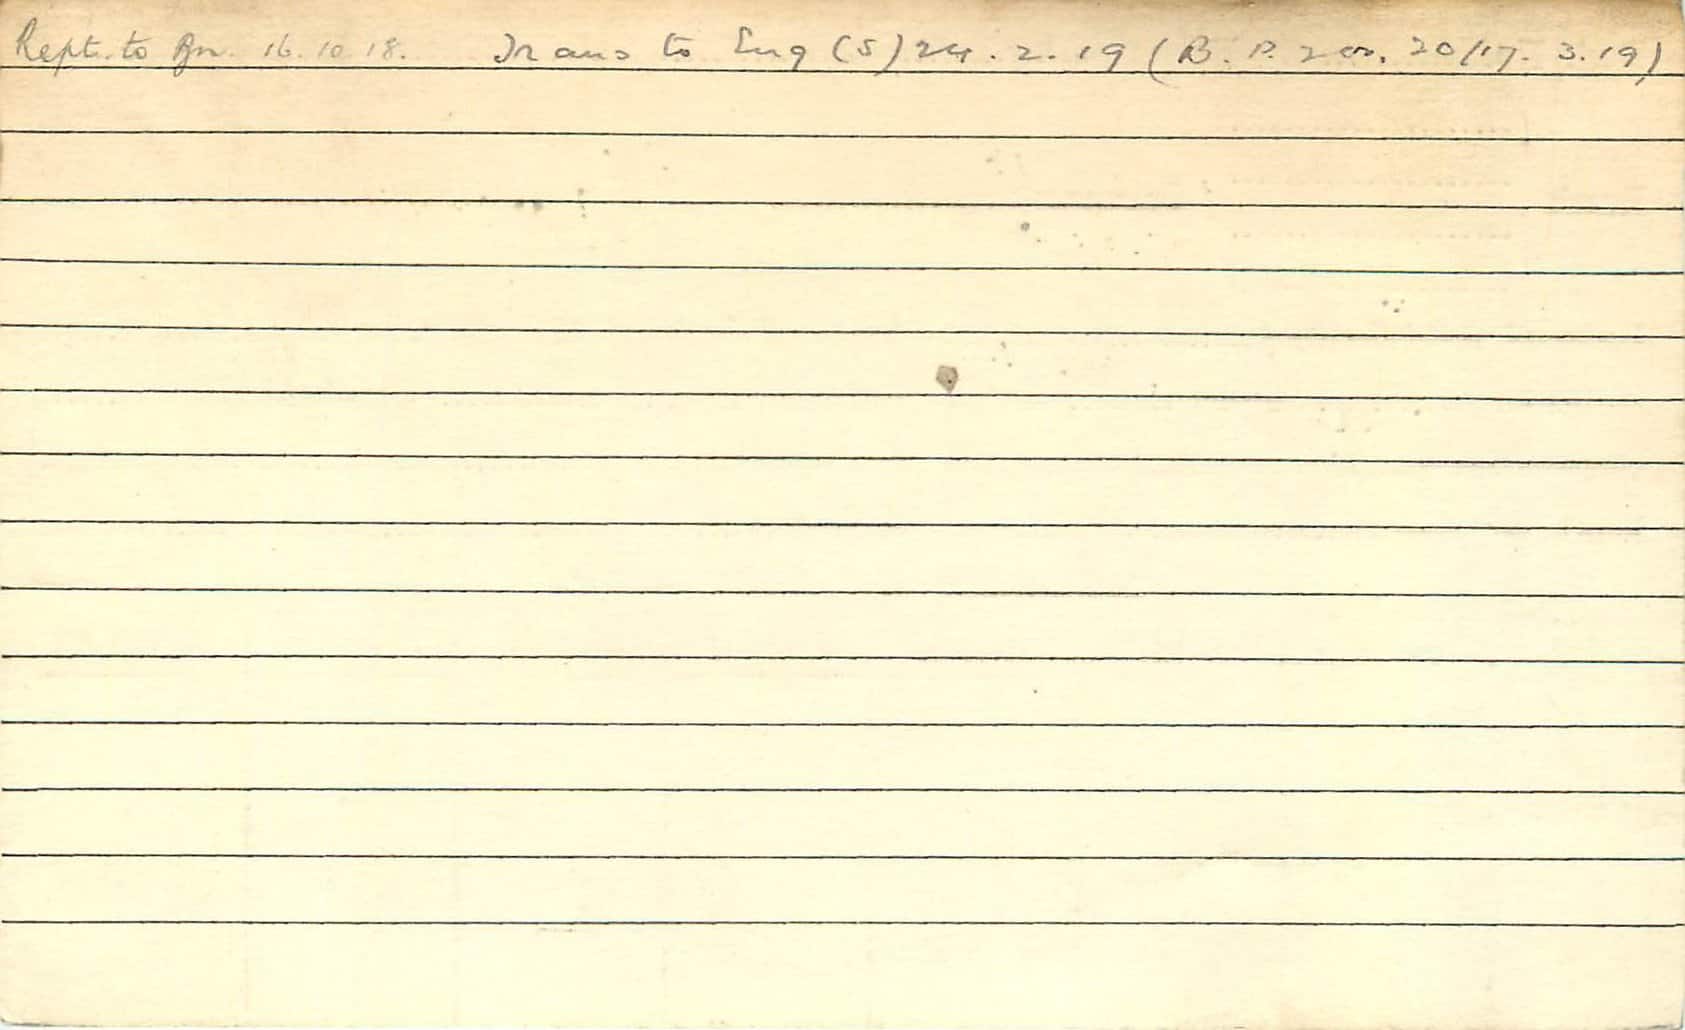 Rept. to Bn. 16.10.18. Trans to Eng (S) 24.2.19 (B. 20/17.3.19)